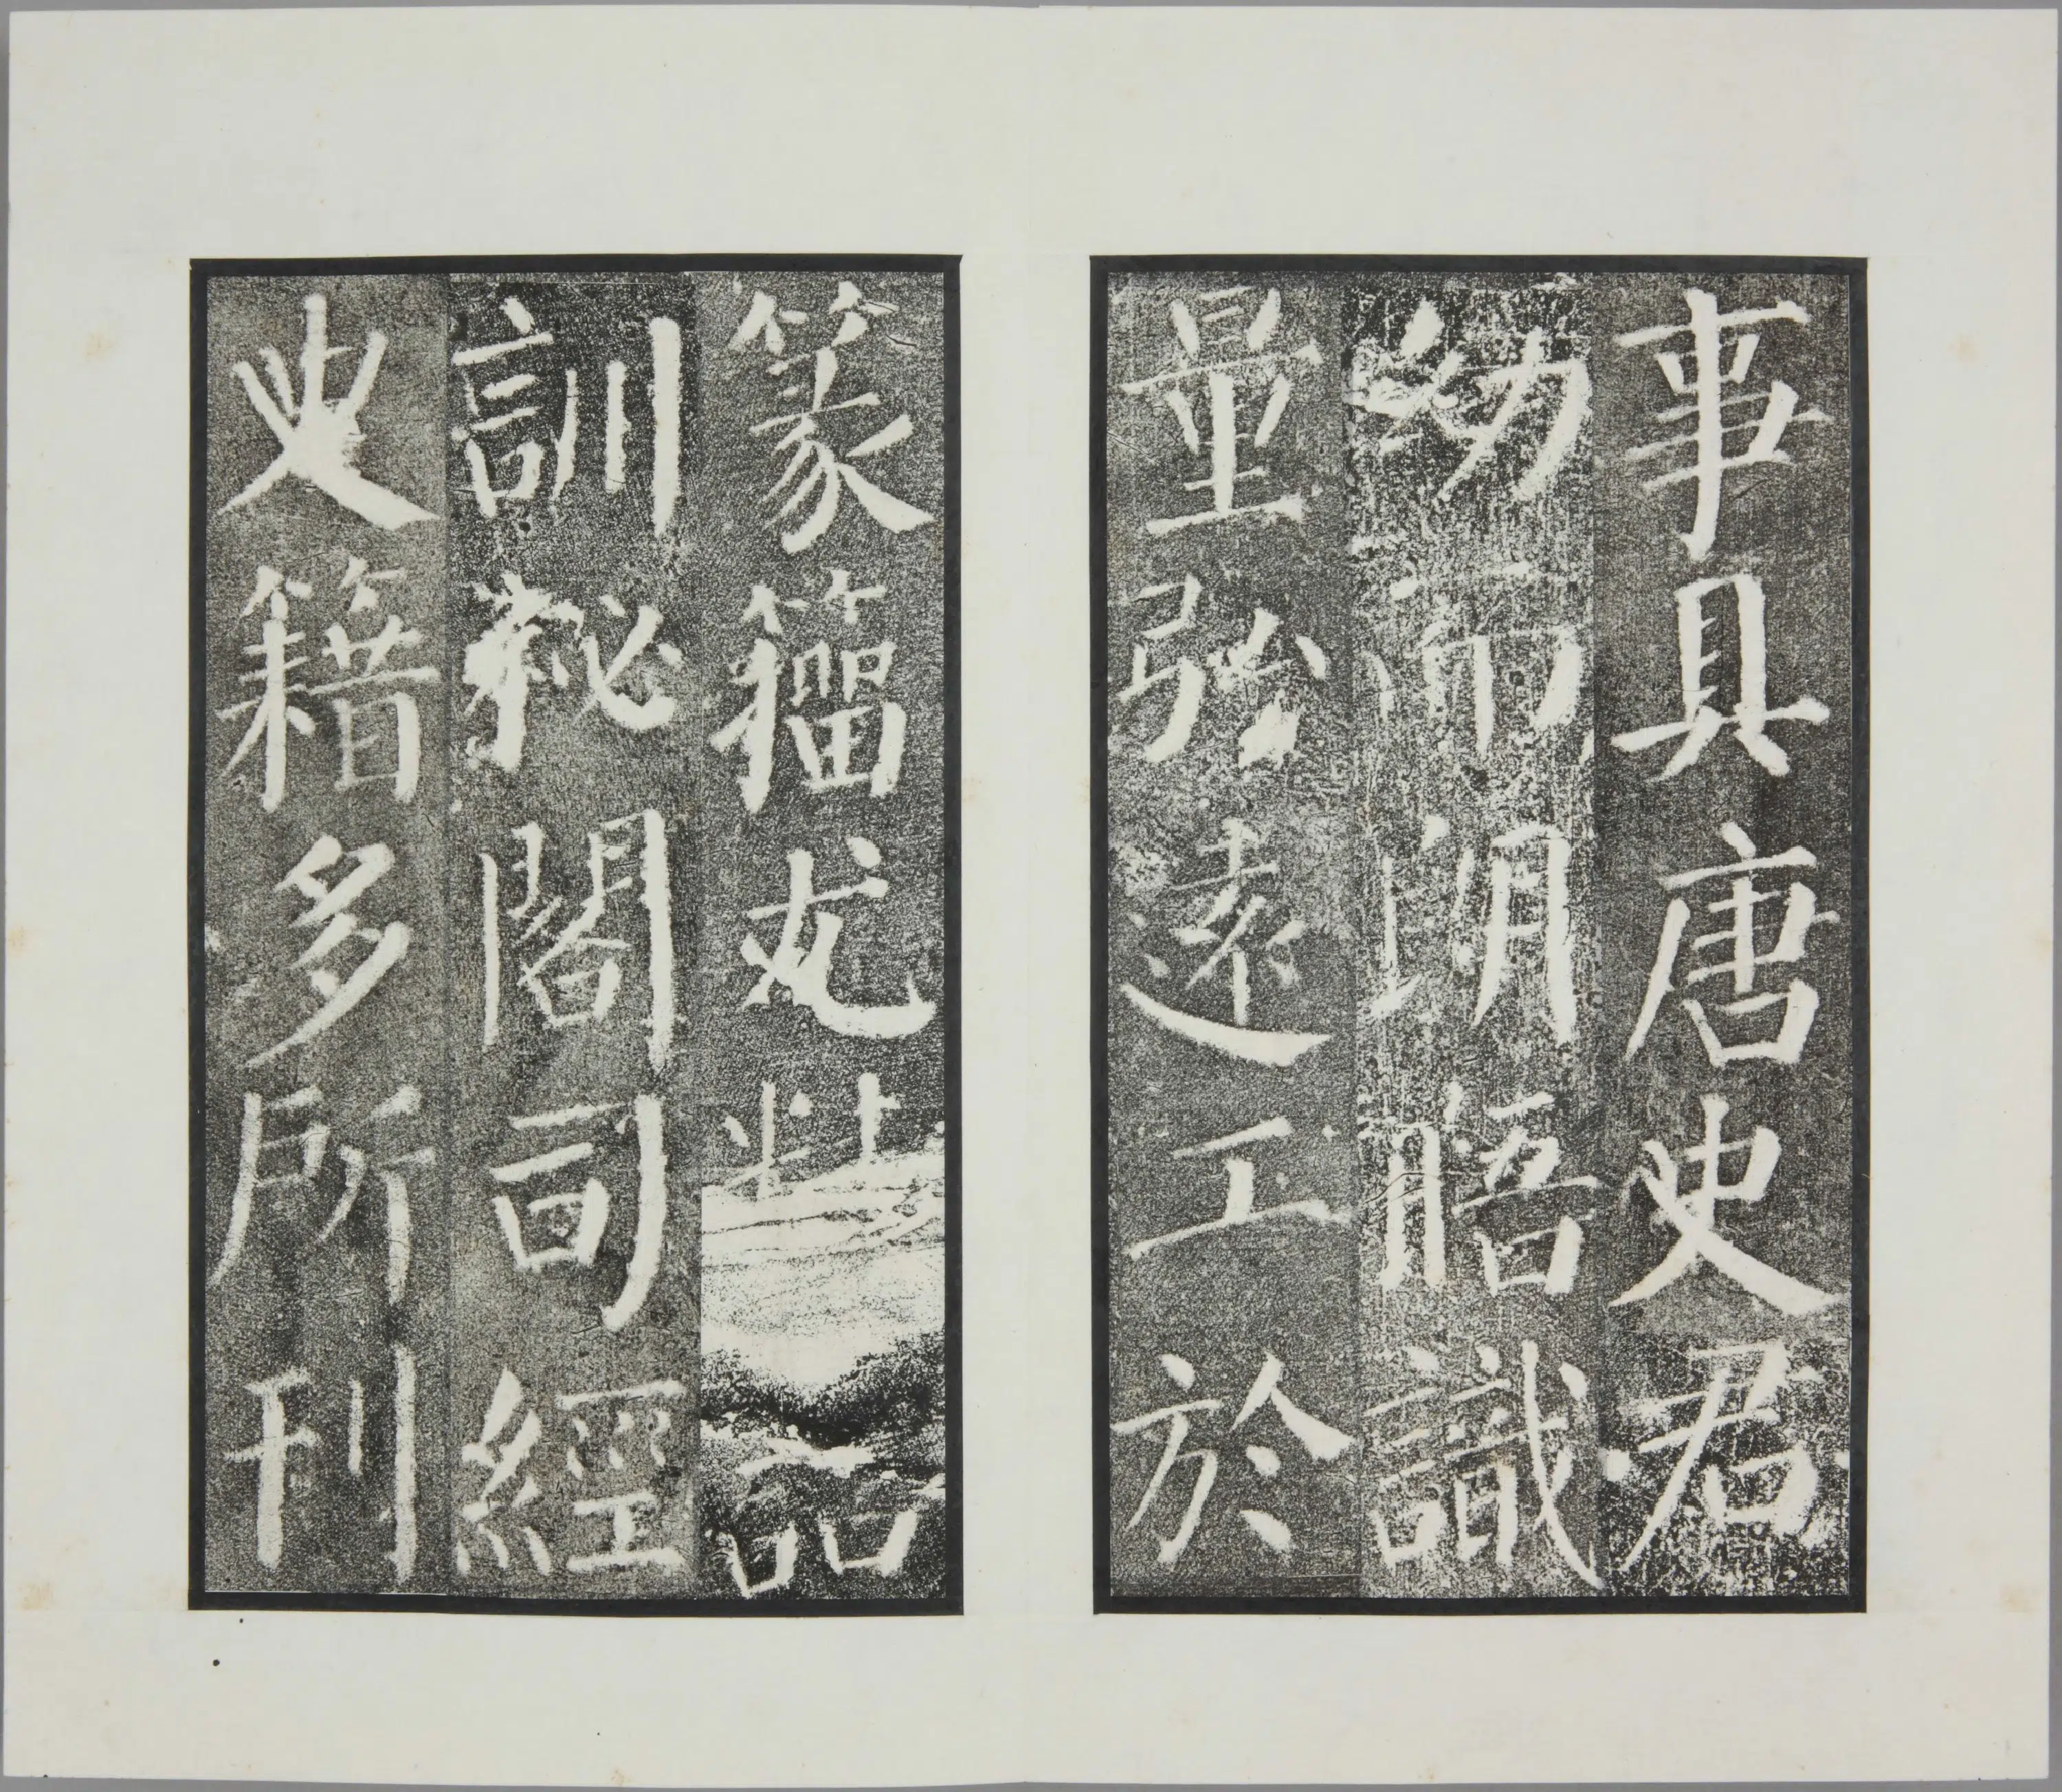 事具唐史君
幼而朗晤識
量弘遠工於
篆籀尤
訓秘閣司經
史籍多所刊